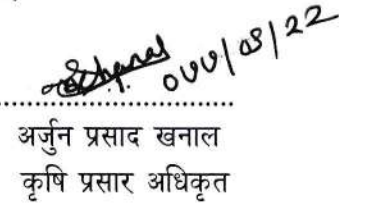 ०७७/०३/२२
....................................
अर्जुन प्रसाद खनाल
कृषि प्रसार अधिकृत